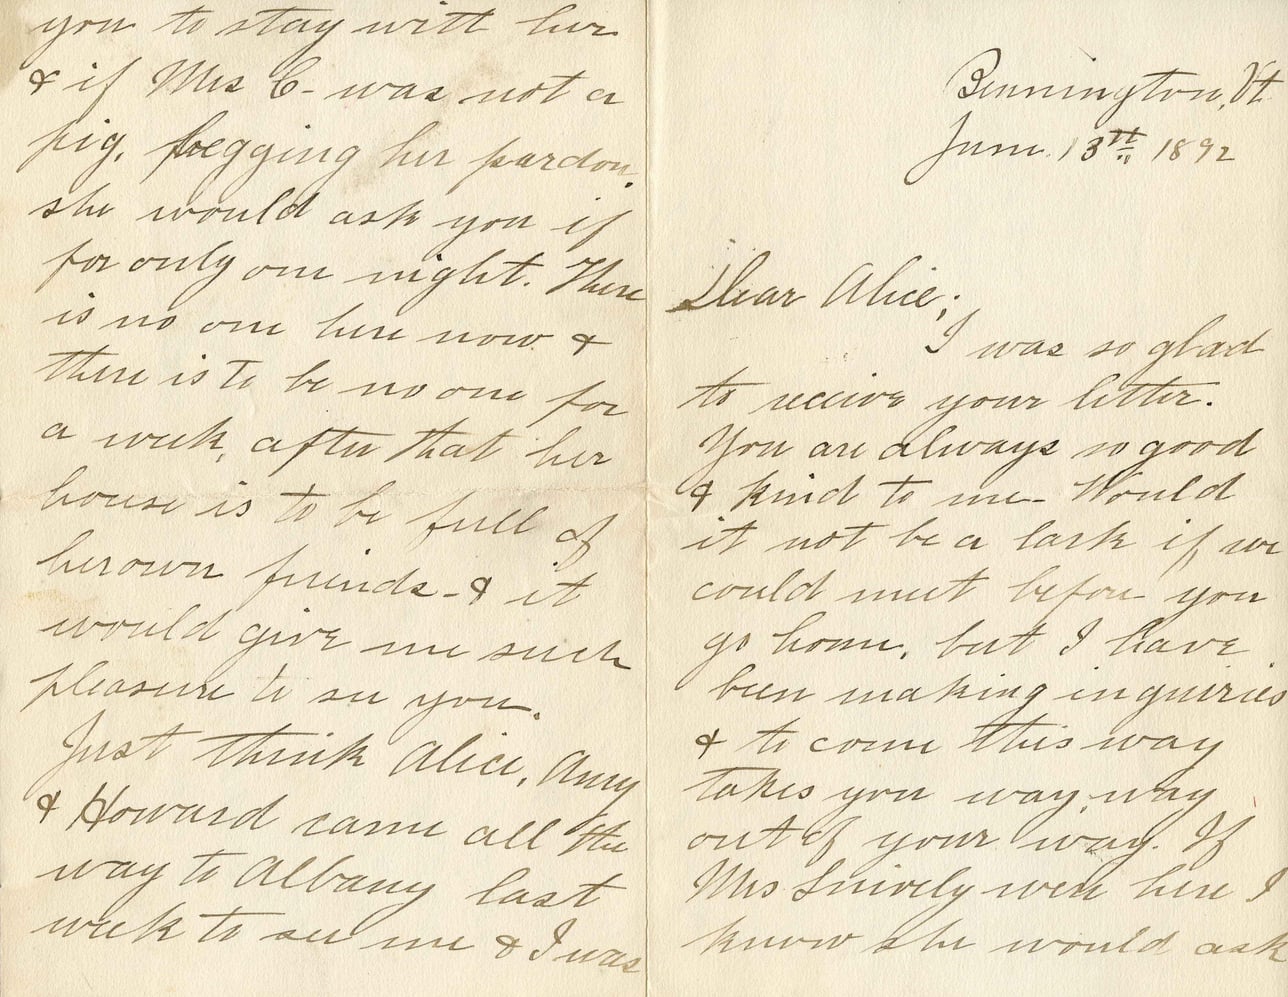 Bennington, Vt
June 13th 1892
Dear Alice;
I was so glad
to receive your letter.
You are always so good
& kind to me - Would
it not be a lark if we
could meet before you
go home, but I have
been making inquiries
& to come this way
takes you way, way
out of your way. If
Mrs Snively were here I
know she would ask
you to stay with her
& if Mrs C- was not a
pig, begging her pardon,
she would ask you if
for only one night. There
is no one here now &
there is to be no one for
a week, after that her
house is to be full of
her own friends - & it
would give me such
pleasure to see you.
Just think Alice, Amy
& Howard came all the
way to Albany last
week to see me & I was